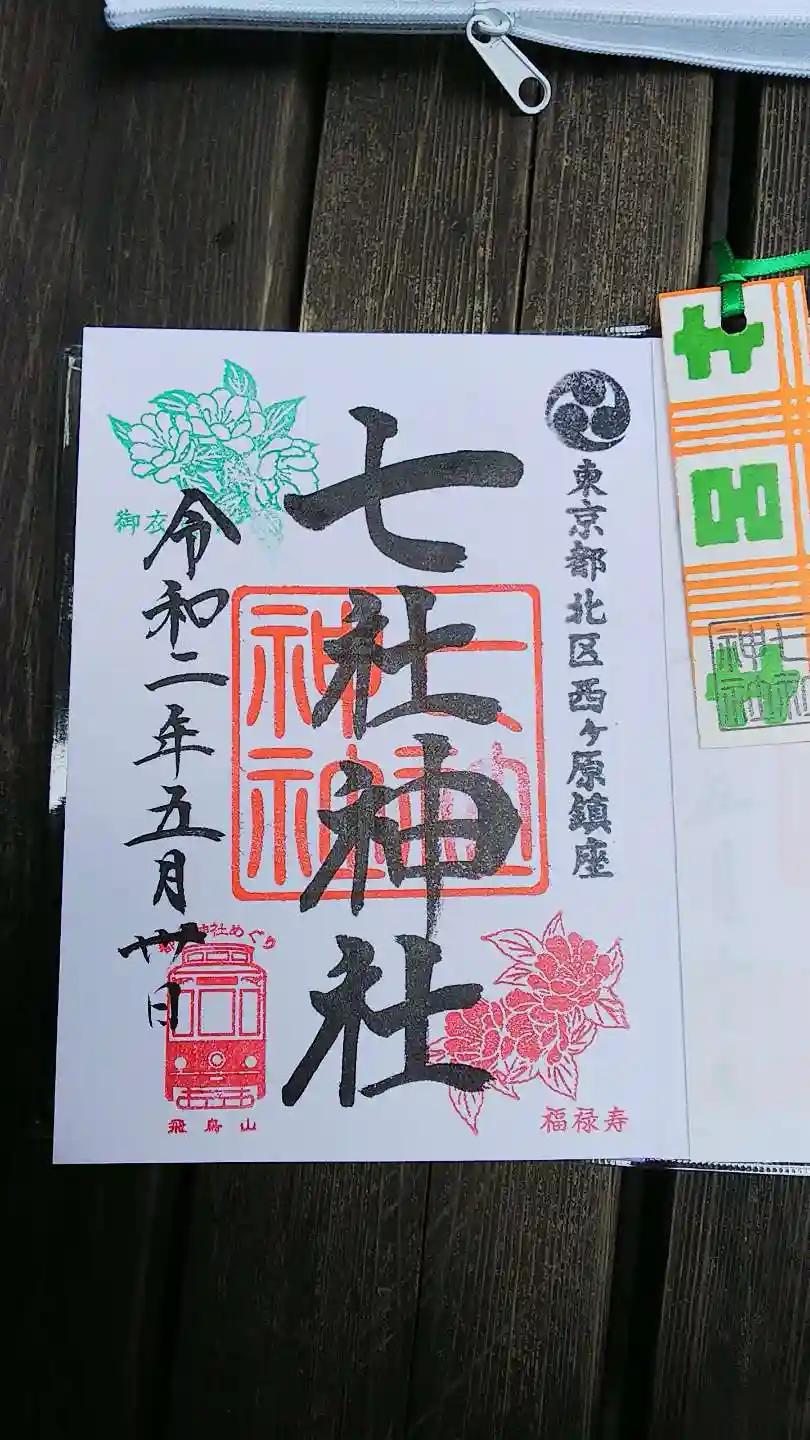 東京都北区西ヶ原鎮座
七社神社
七社神社
令和二年五月廿日
御衣
神社めぐり
飛鳥山
福禄寿
七社
神社